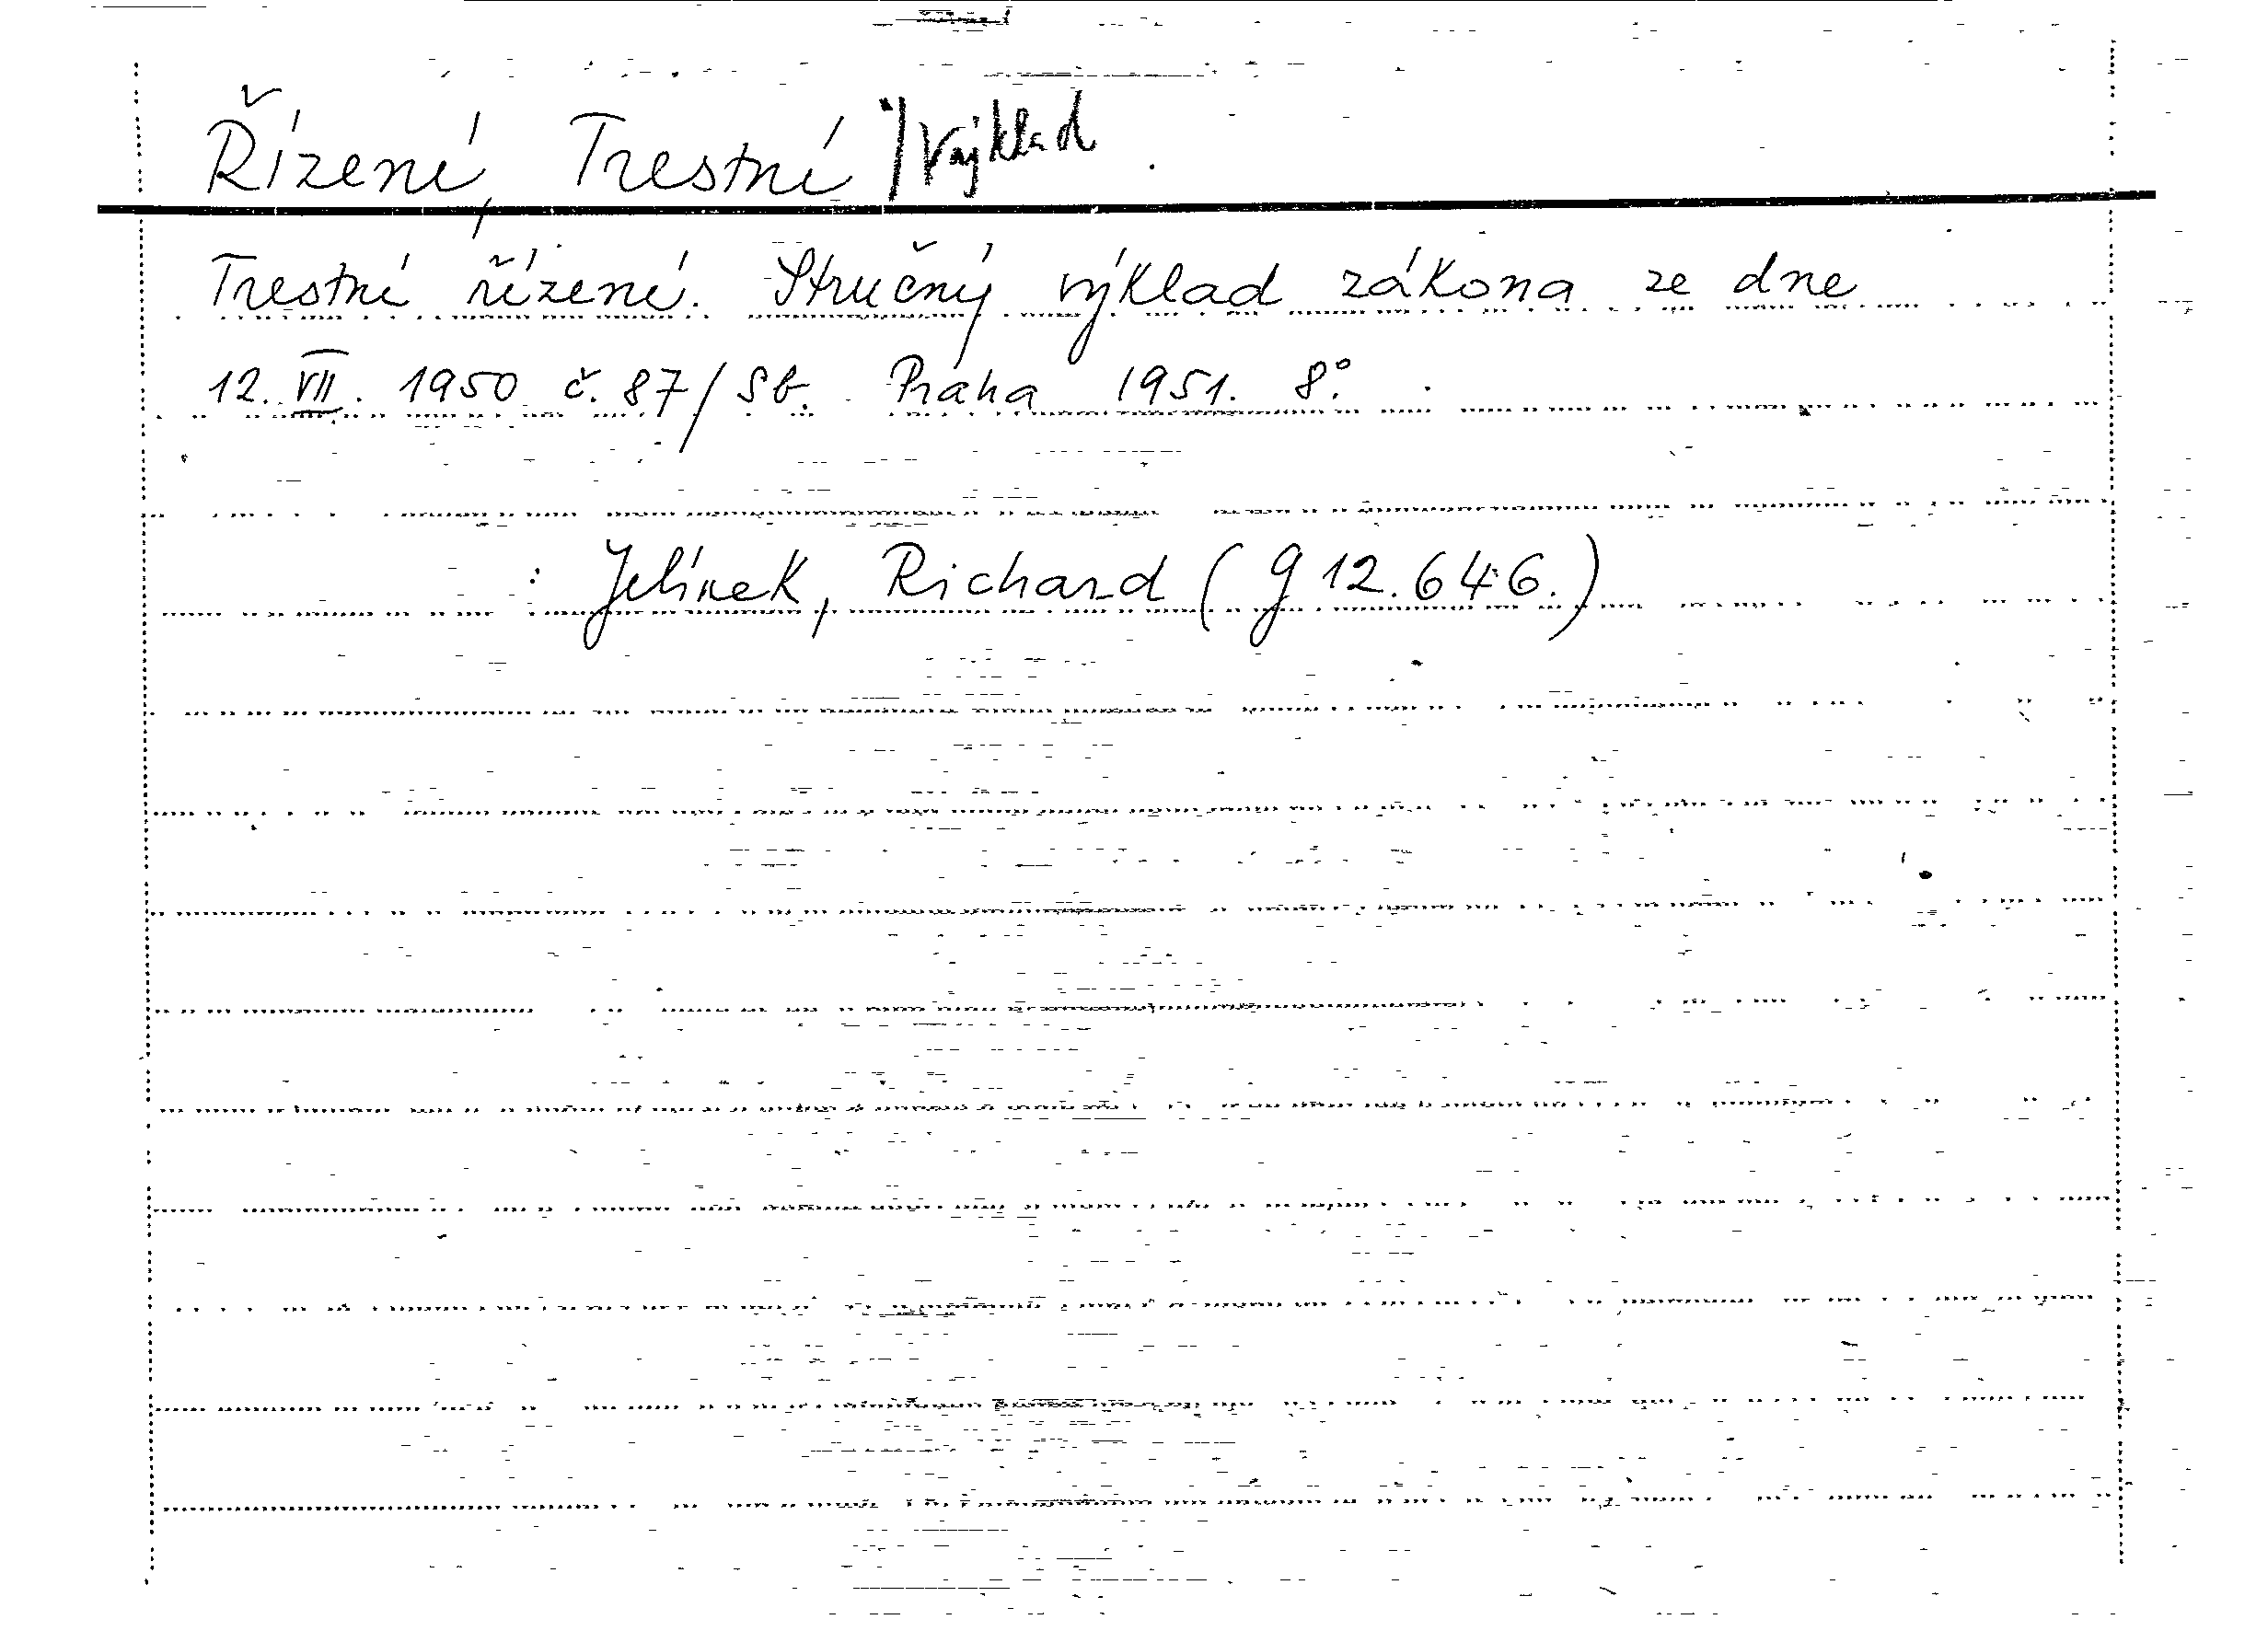 Řízení, Trestní /Výklad
Trestní řízení. Stručný výklad zákona ze dne
12. VII. 1950 č. 87/Sb. Praha 1951. 8°.
: Jelínek, Richard (g 12.646.)